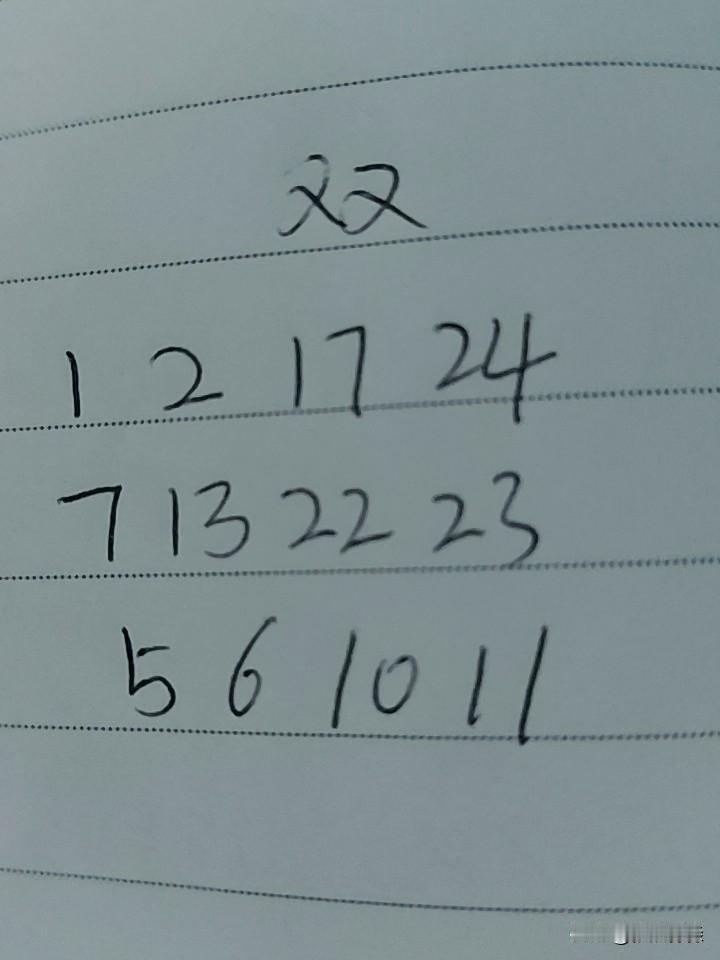 双
1 2 17 24
7 13 22 23
5 6 10 11